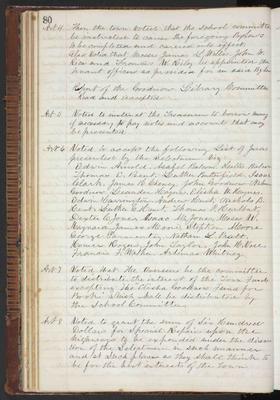 80
Art 4 Then the town voted that the School Committee
be instructed to cause the foregoing Repairs
to be completed and carried into effect
Also voted that Messrs James L. Willis John W.
Rice and Thomas W. Riley be appointed
as provided for in said By law
Report of the Goodnow Library Committee
Read and accepted
Art 5 Voted to authorize the Treasurer to borrow money
if necessary to pay notes and accounts that may
be presented
Art 6 Voted to accept the following List of Jurors
presented by the Selectmen viz
Edwin Arnold
Thomas E. Bent, Luther Butterfield, Isaac
Clark, James O. John Goodnow
Goodnow Leander Haynes, Elisha W. Haynes,
Edwin Harrington Andrew Hunt Nicholas B.
Hunt, Luther E. Hunt Thomas W. Hurlbut
A. Jones Isaac M. Jones Moses W.
Maynard James Moore, Clifton Moore
George Parmenter, Nathan L. Pratt,
Homer Rogers, John Taylor, John W.
Francis F. Walker Artemas Whitney
Art 7 Voted that the Overseers be the committee
to distribute the interest of the Town Fund
excepting the Goodnow Fund for
Books which shall be distributed by
the School Committee
Art 8 Voted to grant the sum of Six Hundred
Dollars for Special Repairs upon the
highways to be expended under the direc
tion of the Selectmen in such manner
and at such places as they shall think to
be for the best interests of the Town